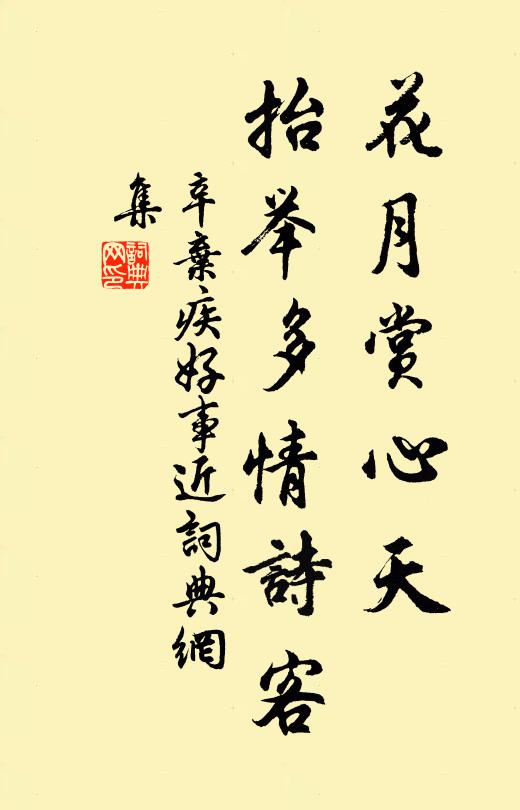 花月赏心天
抬举多情詩客
辛棄疾好事近詞典網
集
詞典網印